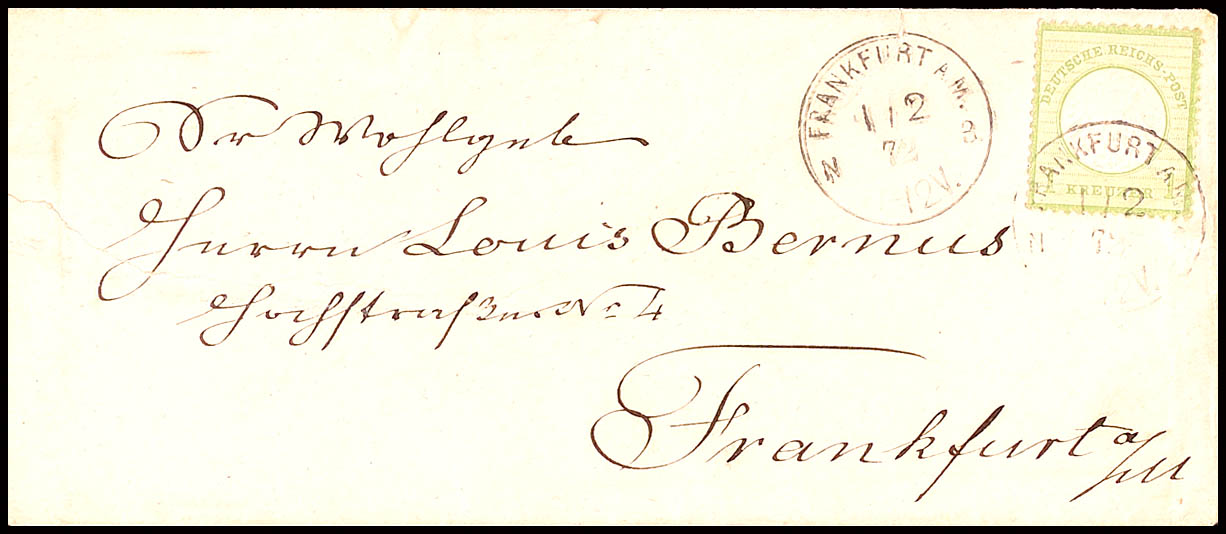 Sr Wohlgeb
Herrn Louis Bernus
Hochstraße No 4
Frankfurt a/M
FRANKFURT A. M.
1 / 2
72
12V.
DEUTSCHE REICHS-POST
1 KREUZER 1
FRANKFURT A.
1 / 2